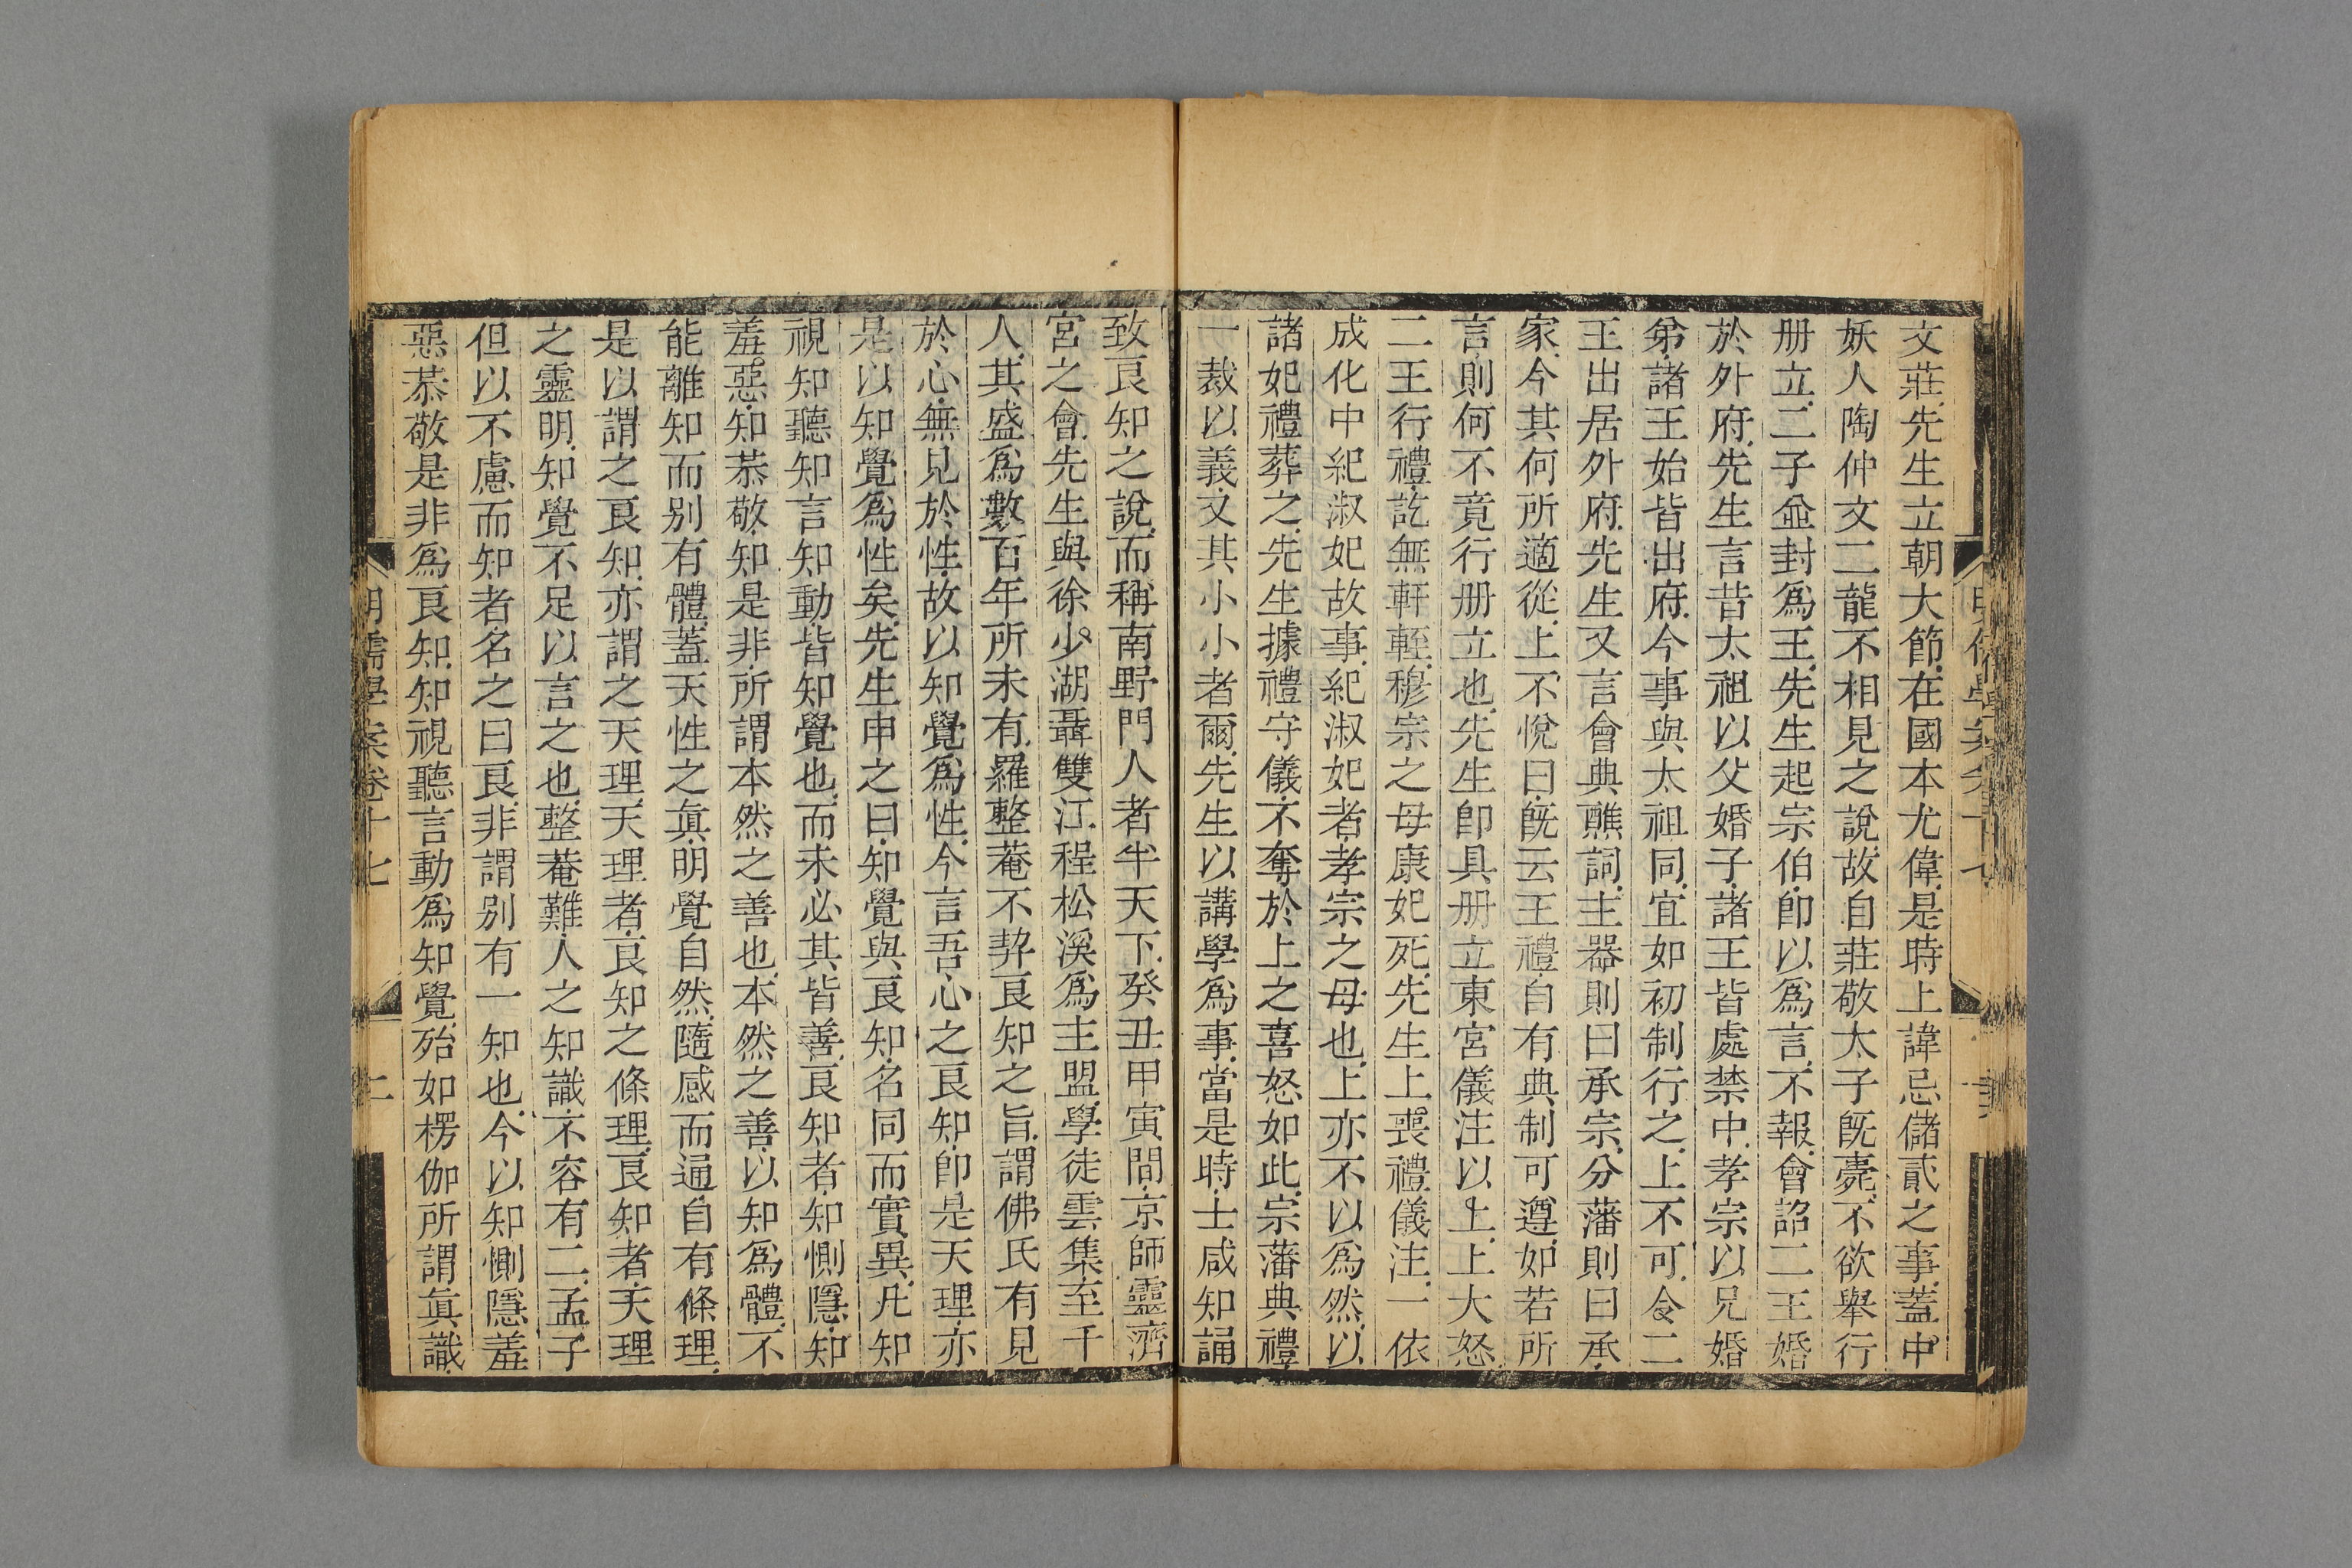 文莊先生立朝大節在國本尤偉是時上諱忌儲貳之事蓋中
妖人陶仲文二龍不相見之說故自莊敬太子旣薨不欲舉行
册立二子並封爲王先生起宗伯卽以爲言不報會詔二王婚
於外府先生言昔太祖以父婚子諸王皆處禁中孝宗以兄婚
弟諸王始皆出府今事與太祖同宜如初制行之上不可令二
王出居外府先生又言會典醮詞主器則曰承宗分藩則曰承
家今其何所適從上不悅曰旣云王禮自有典制可遵如若所
言則何不竟行册立也先生卽具册立東宮儀注以上上大怒
二王行禮訖無軒輊穆宗之母康妃死先生上喪禮儀注一依
成化中紀淑妃故事紀淑妃者孝宗之母也上亦不以爲然以
諸妃禮葬之先生據禮守儀不奪於上之喜怒如此宗藩典禮
一裁以義又其小小者爾先生以講學爲事當是時士咸知誦
致良知之說而稱南野門人者半天下癸丑甲寅間京師靈濟
宮之會先生與徐少湖聶雙江程松溪爲主盟學徒雲集至千
人其盛爲數百年所未有羅整菴不契良知之旨謂佛氏有見
於心無見於性故以知覺爲性今言吾心之良知卽是天理亦
是以知覺爲性矣先生申之曰知覺與良知名同而實異凡知
視知聽知言知動皆知覺也而未必其皆善良知者知惻隱知
羞惡知恭敬知是非所謂本然之善也本然之善以知爲體不
能離知而别有體蓋天性之眞明覺自然隨感而通自有條理
是以謂之良知亦謂之天理天理者良知之條理良知者天理
之靈明知覺不足以言之也整菴難人之知識不容有二孟子
但以不慮而知者名之曰良非謂别有一知也今以知惻隱羞
惡恭敬是非爲良知知視聽言動爲知覺殆如楞伽所謂眞識
明儒學案卷十七
二